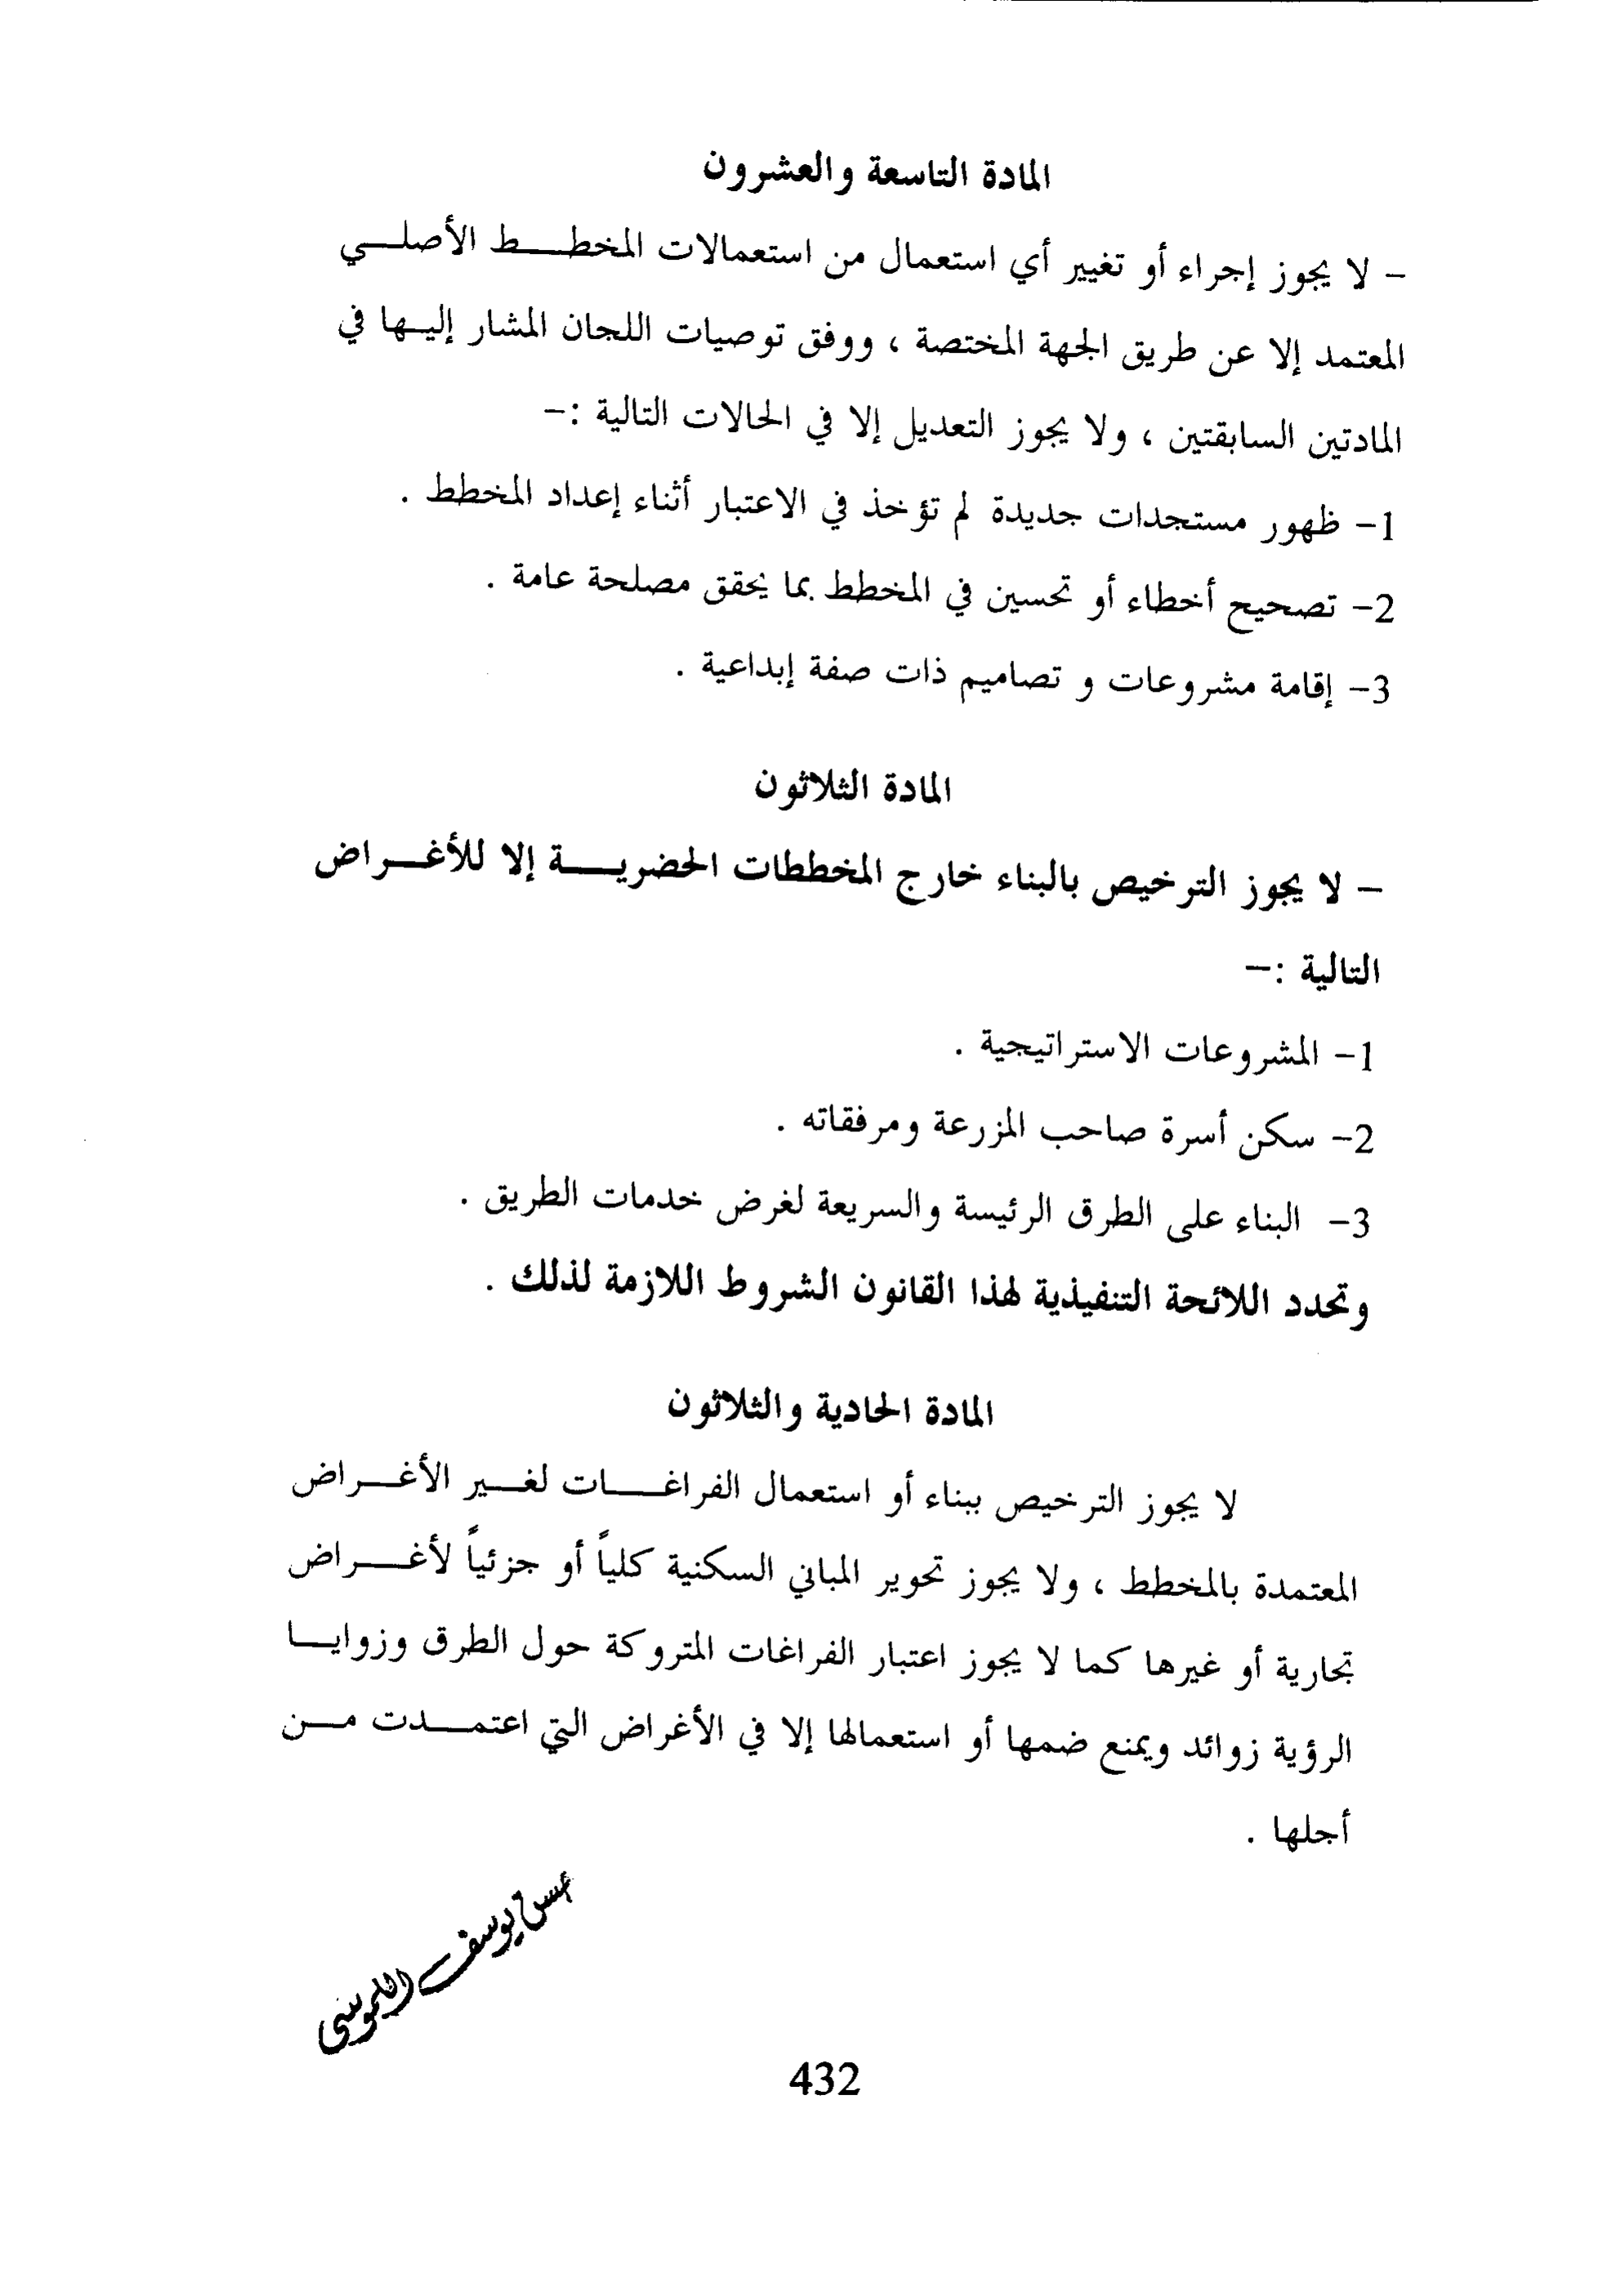 المادة التاسعة والعشرون
– لا يجوز إجراء أو تغيير أي استعمال من استعمالات المخطط الأصلي
المعتمد إلا عن طريق الجهة المختصة ، ووفق توصيات اللجان المشار إليها في
المادتين السابقتين ، ولا يجوز التعديل إلا في الحالات التالية :–
1– ظهور مستجدات جديدة لم تؤخذ في الاعتبار أثناء إعداد المخطط .
2– تصحيح أخطاء أو تحسين في المخطط بما يحقق مصلحة عامة .
3– إقامة مشروعات و تصاميم ذات صفة إبداعية .
المادة الثلاثون
– لا يجوز الترخيص بالبناء خارج المخططات الحضرية إلا للأغراض
التالية :–
1– المشروعات الاستراتيجية .
2– سكن أسرة صاحب المزرعة ومرفقاته .
3– البناء على الطرق الرئيسة والسريعة لغرض خدمات الطريق .
وتحدد اللائحة التنفيذية لهذا القانون الشروط اللازمة لذلك .
المادة الحادية والثلاثون
لا يجوز الترخيص ببناء أو استعمال الفراغات لغير الأغراض
المعتمدة بالمخطط ، ولا يجوز تحوير المباني السكنية كلياً أو جزئياً لأغراض
تجارية أو غيرها كما لا يجوز اعتبار الفراغات المتروكة حول الطرق وزوايا
الرؤية زوائد ويمنع ضمها أو استعمالها إلا في الأغراض التي اعتمدت من
أجلها .
يوسف
432